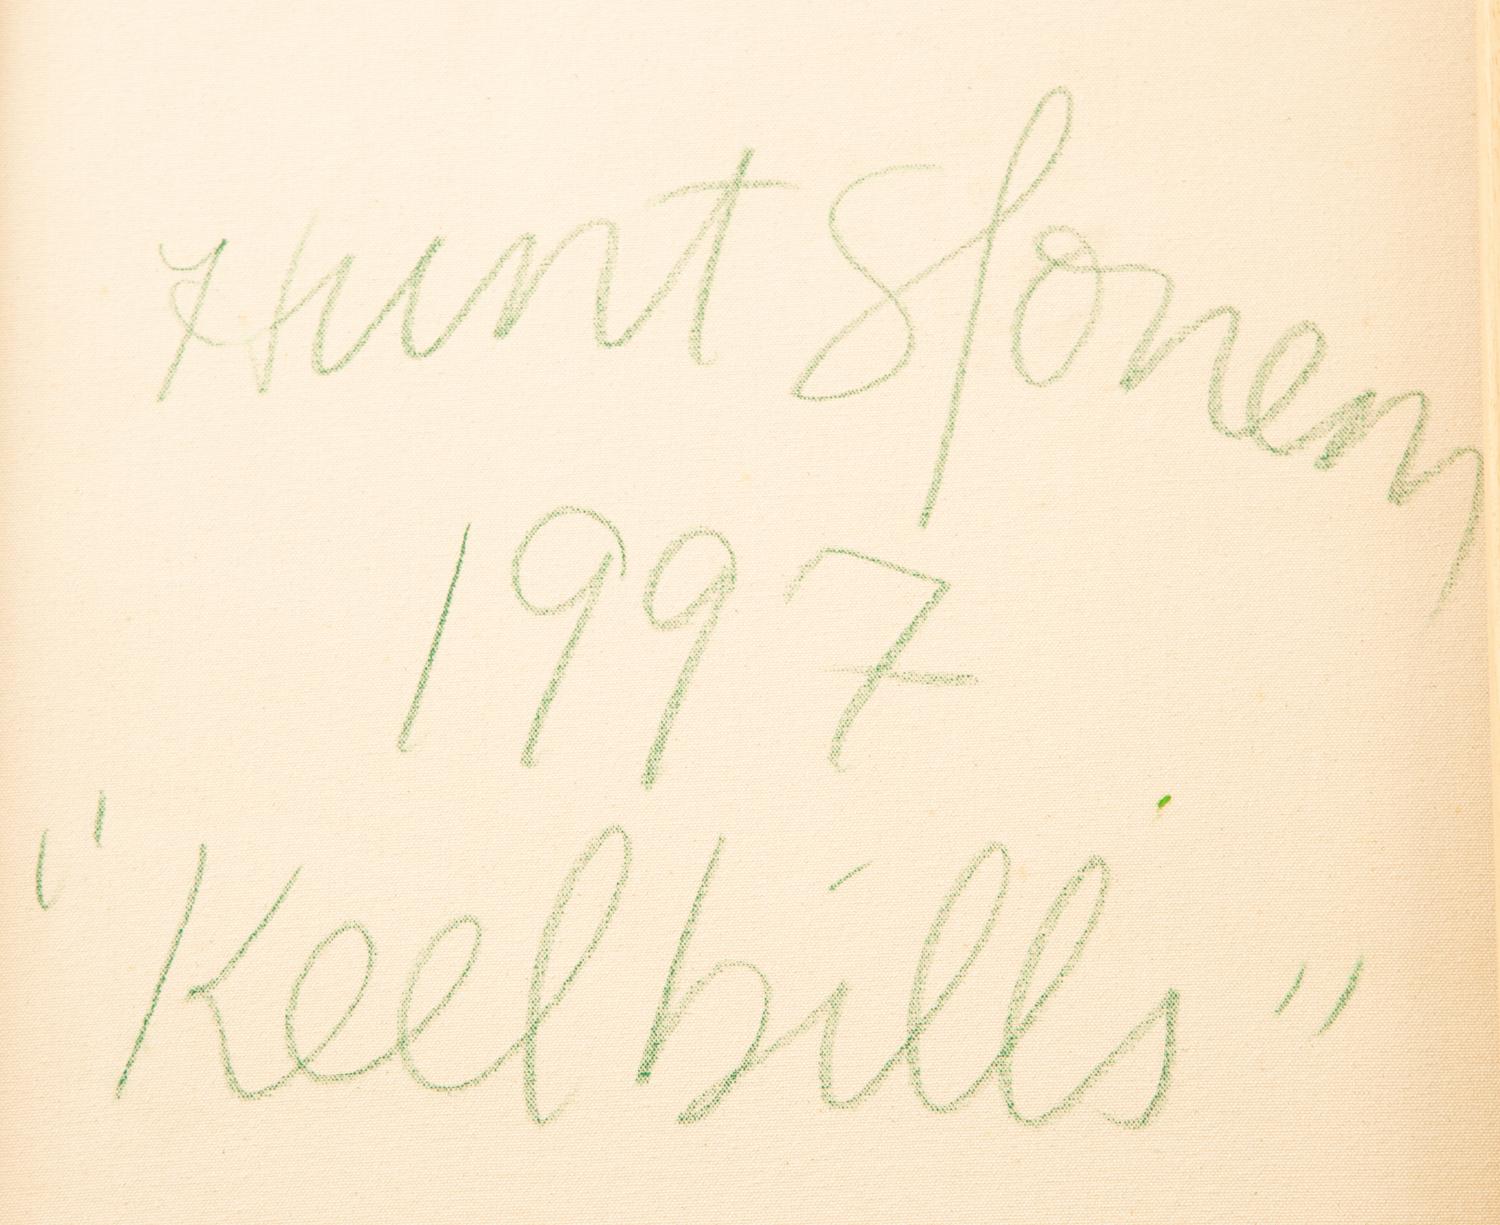 Hunt Slonem
1997
"Keelbills"